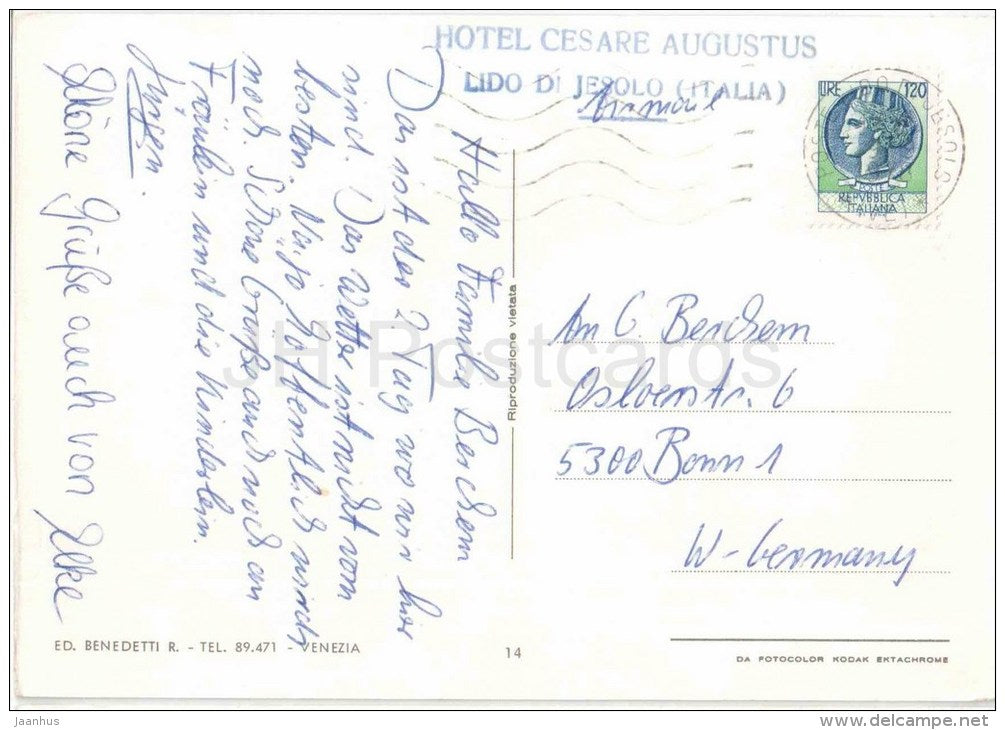 HOTEL CESARE AUGUSTUS
LIDO DI JESOLO (ITALIA)
Airmail
LIRE 120
POSTE
REPVBBLICA
ITALIANA
Hallo Familie Berchem
Das ist der 2 Tag wo wir hier
sind. Das Wetter ist nicht vom
besten. Na jo hoffentlich wirds
noch. Schöne Grüße auch noch an
Fräulein und die Kinderlein.
Jürgen.
Schöne Grüße auch von Elke
An G. Berchem
Osloerstr. 6
5300 Bonn 1
W-Germany
Riproduzione vietata
ED. BENEDETTI R. - TEL. 89.471 - VENEZIA
14
DA FOTOCOLOR KODAK EKTACHROME
JH Postcards
jaanhus
www.delcampe.net